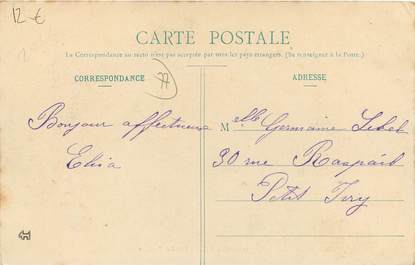 12 €
CARTE POSTALE
La Correspondance au recto n'est pas acceptée par tous les pays étrangers. (Se renseigner à la Poste.)
CORRESPONDANCE
77
ADRESSE
Bonjour affectueux
Elisa
Melle Germaine
30 rue Raspail
Petit Ivry